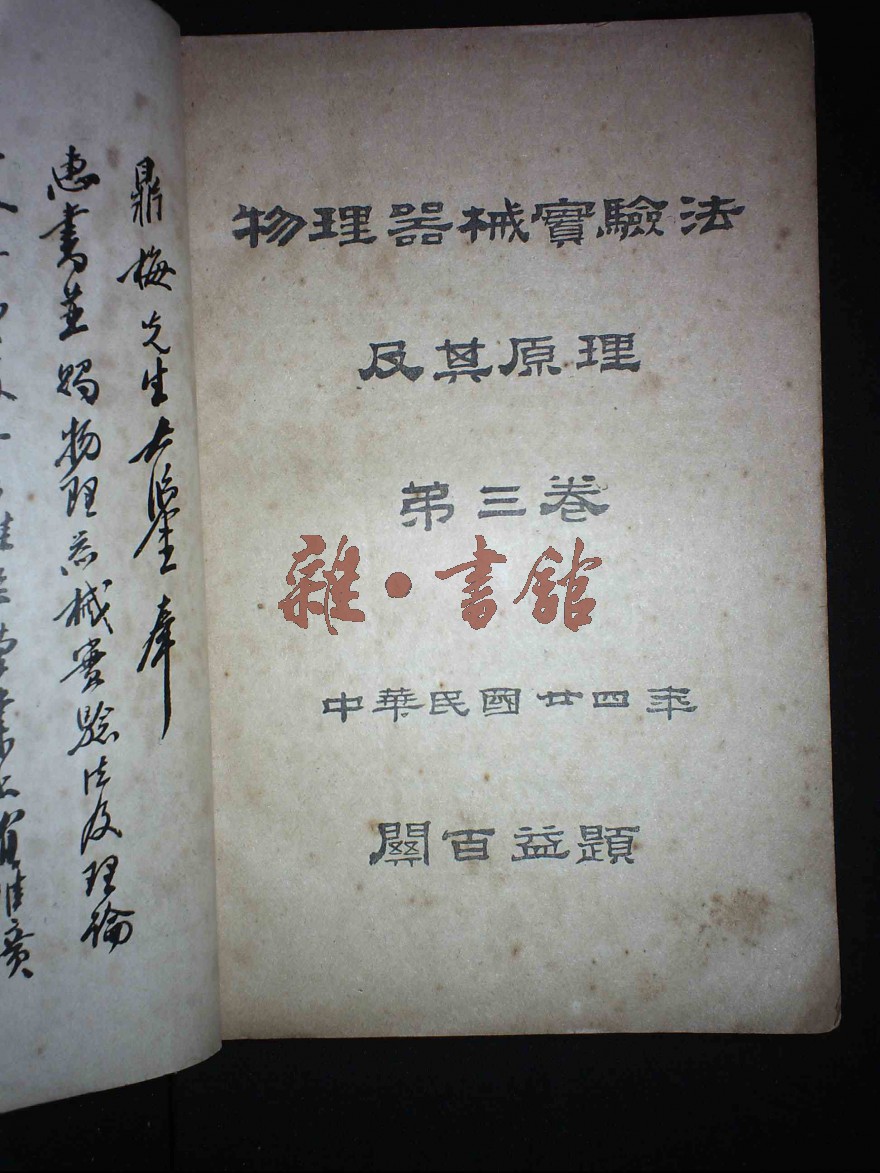 物理器械實驗法
及其原理
第三卷
雜·書館
中華民國廿四年
關百益題
鼎梅先生大鑒奉
惠書並賜物理器械實驗法及理論